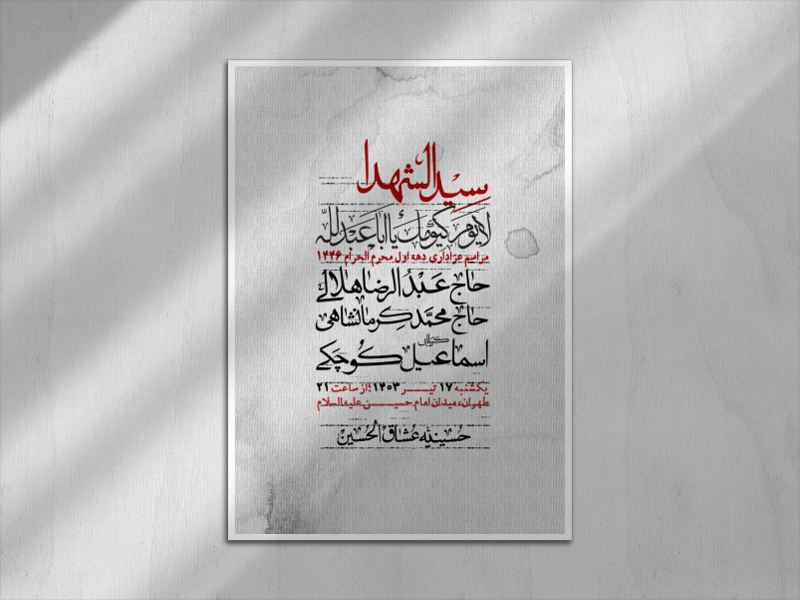 سیدالشهدا
لایوم کیومک یااباعبدالله
مراسم عزاداری دهه اول محرم الحرام ۱۴۴۶
حاج عبدالرضا هلالی
حاج محمد کرمانشاهی
کربلایی اسماعیل کوچکی
یکشنبه ۱۷ تیر ۱۴۰۳ از ساعت ۲۱
طهران، میدان امام حسین علیه السلام
حسینیه عشاق الحسین